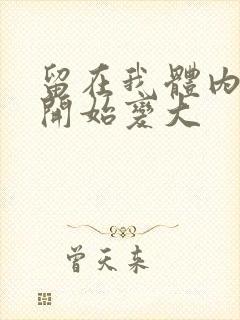 留在我體內
開始變大
曾天來